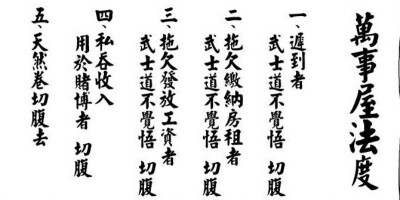 萬事屋法度
一、遲到者
武士道不覺悟 切腹
二、拖欠繳納房租者
武士道不覺悟 切腹
三、拖欠發放工資者
武士道不覺悟 切腹
四、私吞收入
用於賭博者 切腹
五、天然卷切腹去